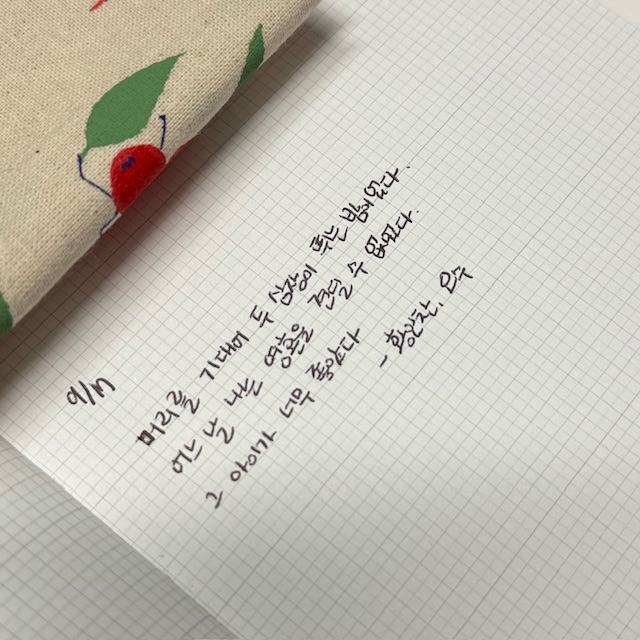 머리를 기대어 두 심장이 뛰는 밤이었다.
어느 날 나는 영혼을 견딜 수 없었다.
그 아이가 너무 좋았다
- 황인찬, 오수